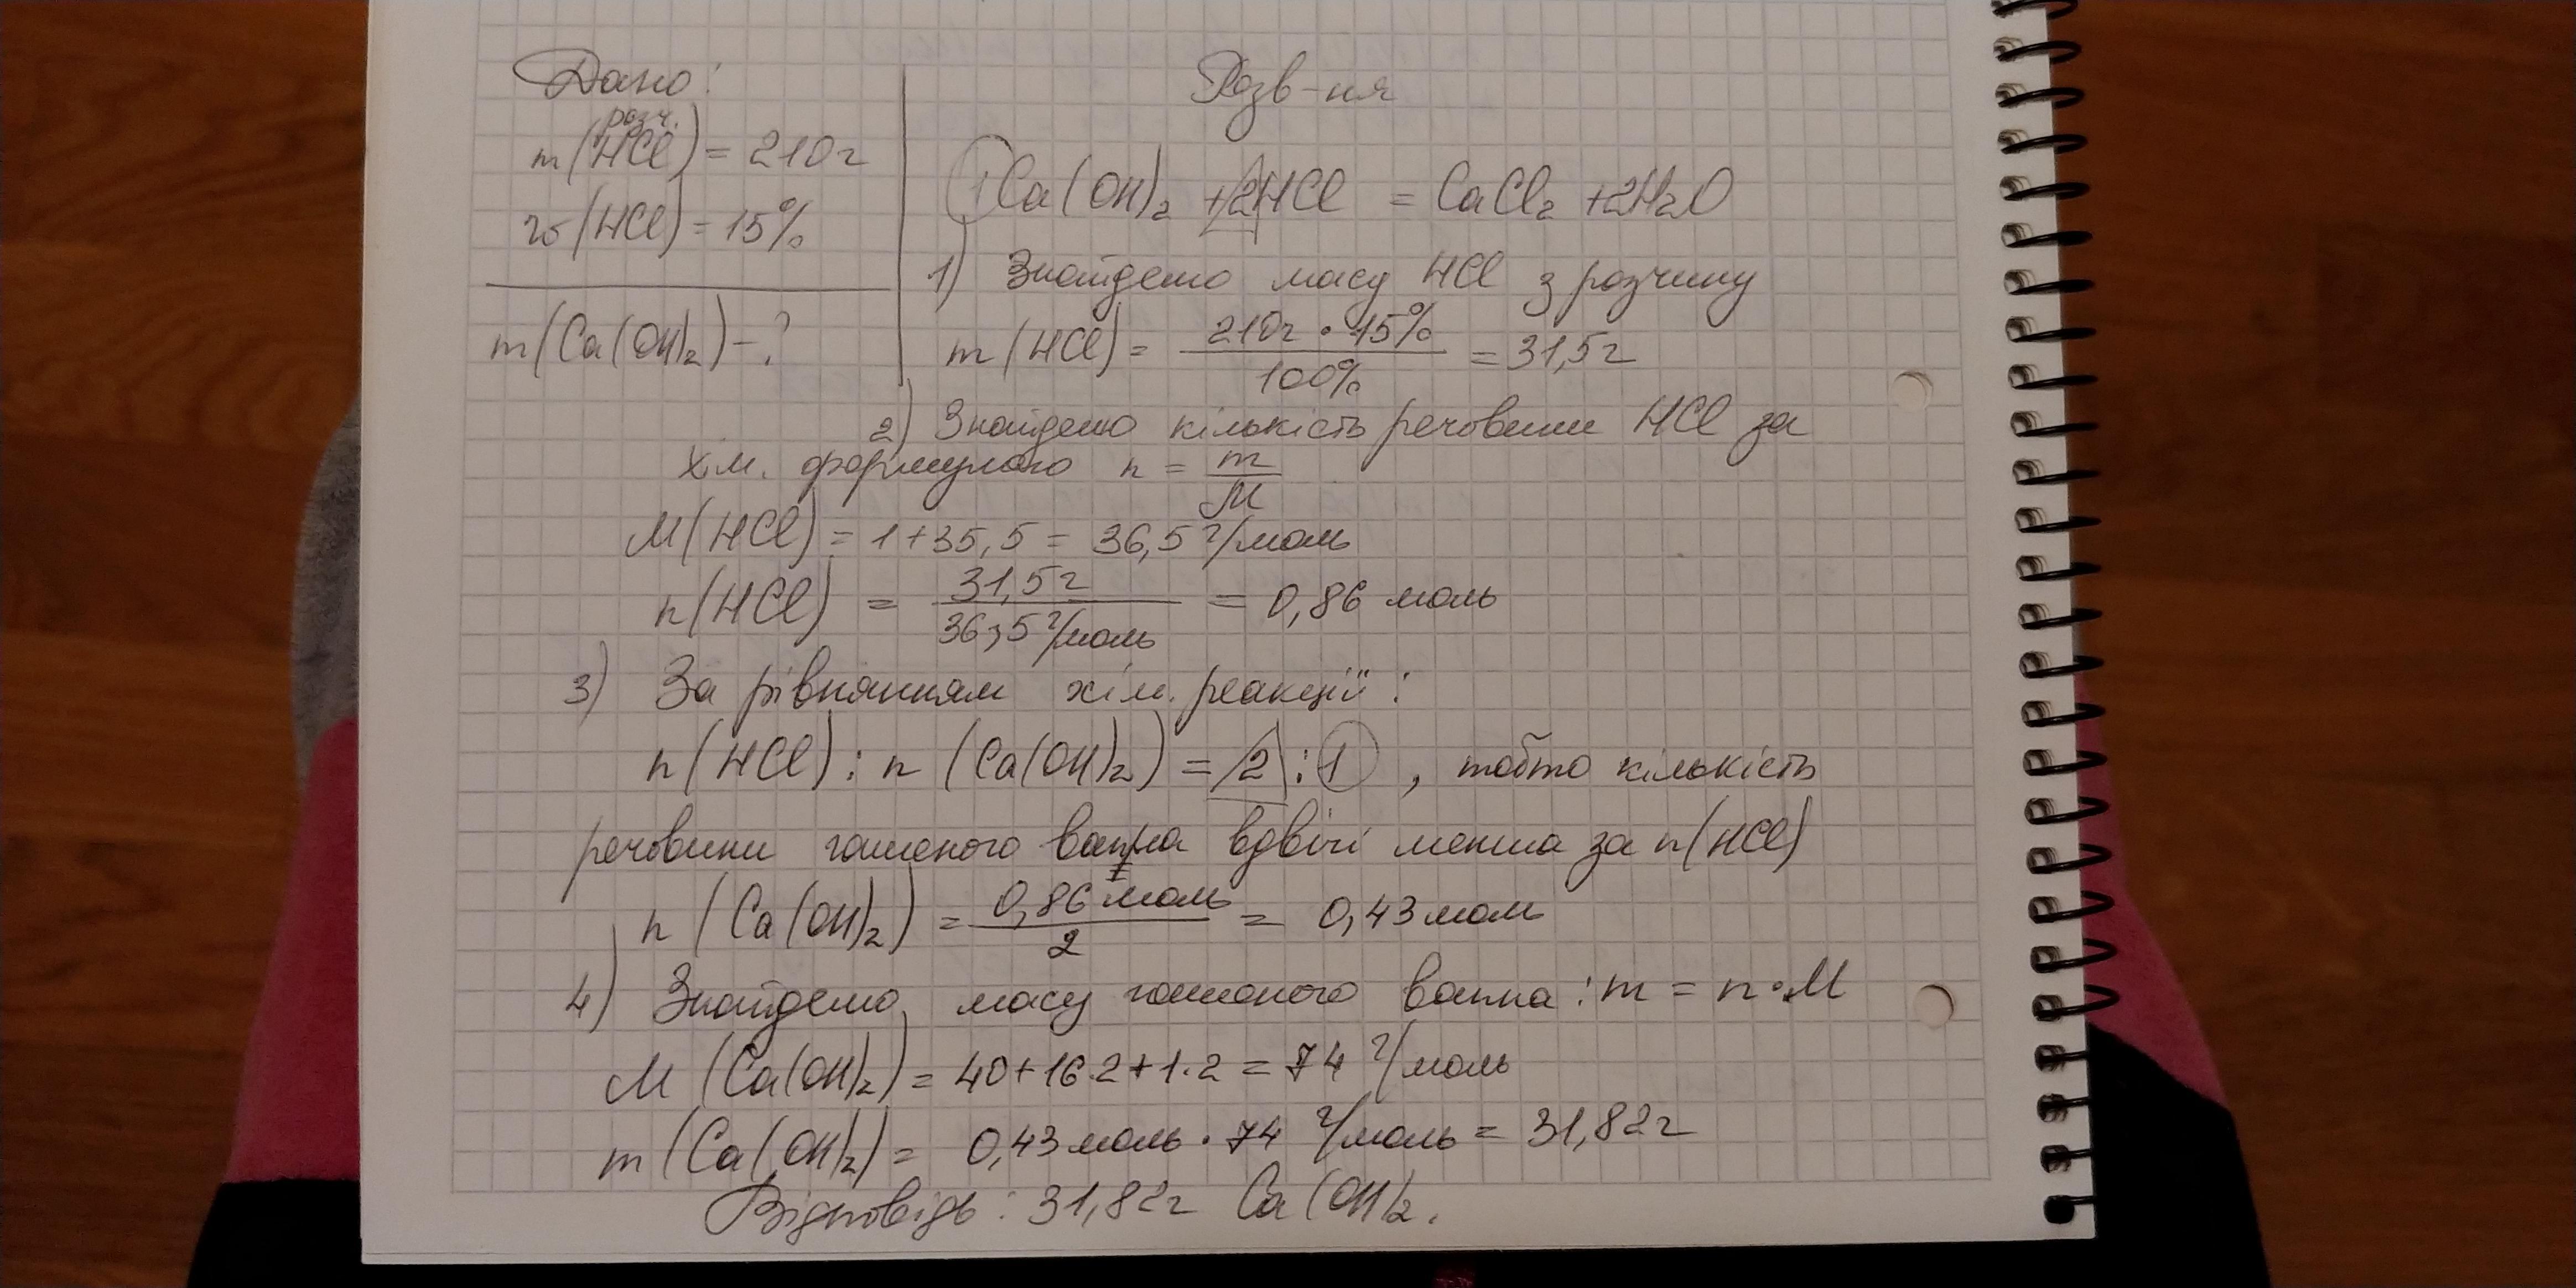 Дано:
розч.
m(HCl) = 210г
w(HCl) = 15%
m(Ca(OH)₂) - ?
Розв-ня
1Ca(OH)₂ + 2HCl = CaCl₂ + 2H₂O
1) Знайдемо масу HCl з розчину
m(HCl) = 210г • 15% / 100% = 31,5г
2) Знайдемо кількість речовини HCl за
хім. формулою n = m / M
M(HCl) = 1+35,5 = 36,5 г/моль
n(HCl) = 31,5г / 36,5 г/моль = 0,86 моль
3) За рівнянням хім. реакції:
n(HCl) : n(Ca(OH)₂) = 2 : 1, тобто кількість
речовини гашеного вапна вдвічі менша за n(HCl)
n(Ca(OH)₂) = 0,86 моль / 2 = 0,43 моль
4) Знайдемо масу гашеного вапна : m = n • M
M(Ca(OH)₂) = 40+16·2+1·2 = 74 г/моль
m(Ca(OH)₂) = 0,43 моль • 74 г/моль = 31,82г
Відповідь : 31,82г Ca(OH)₂.